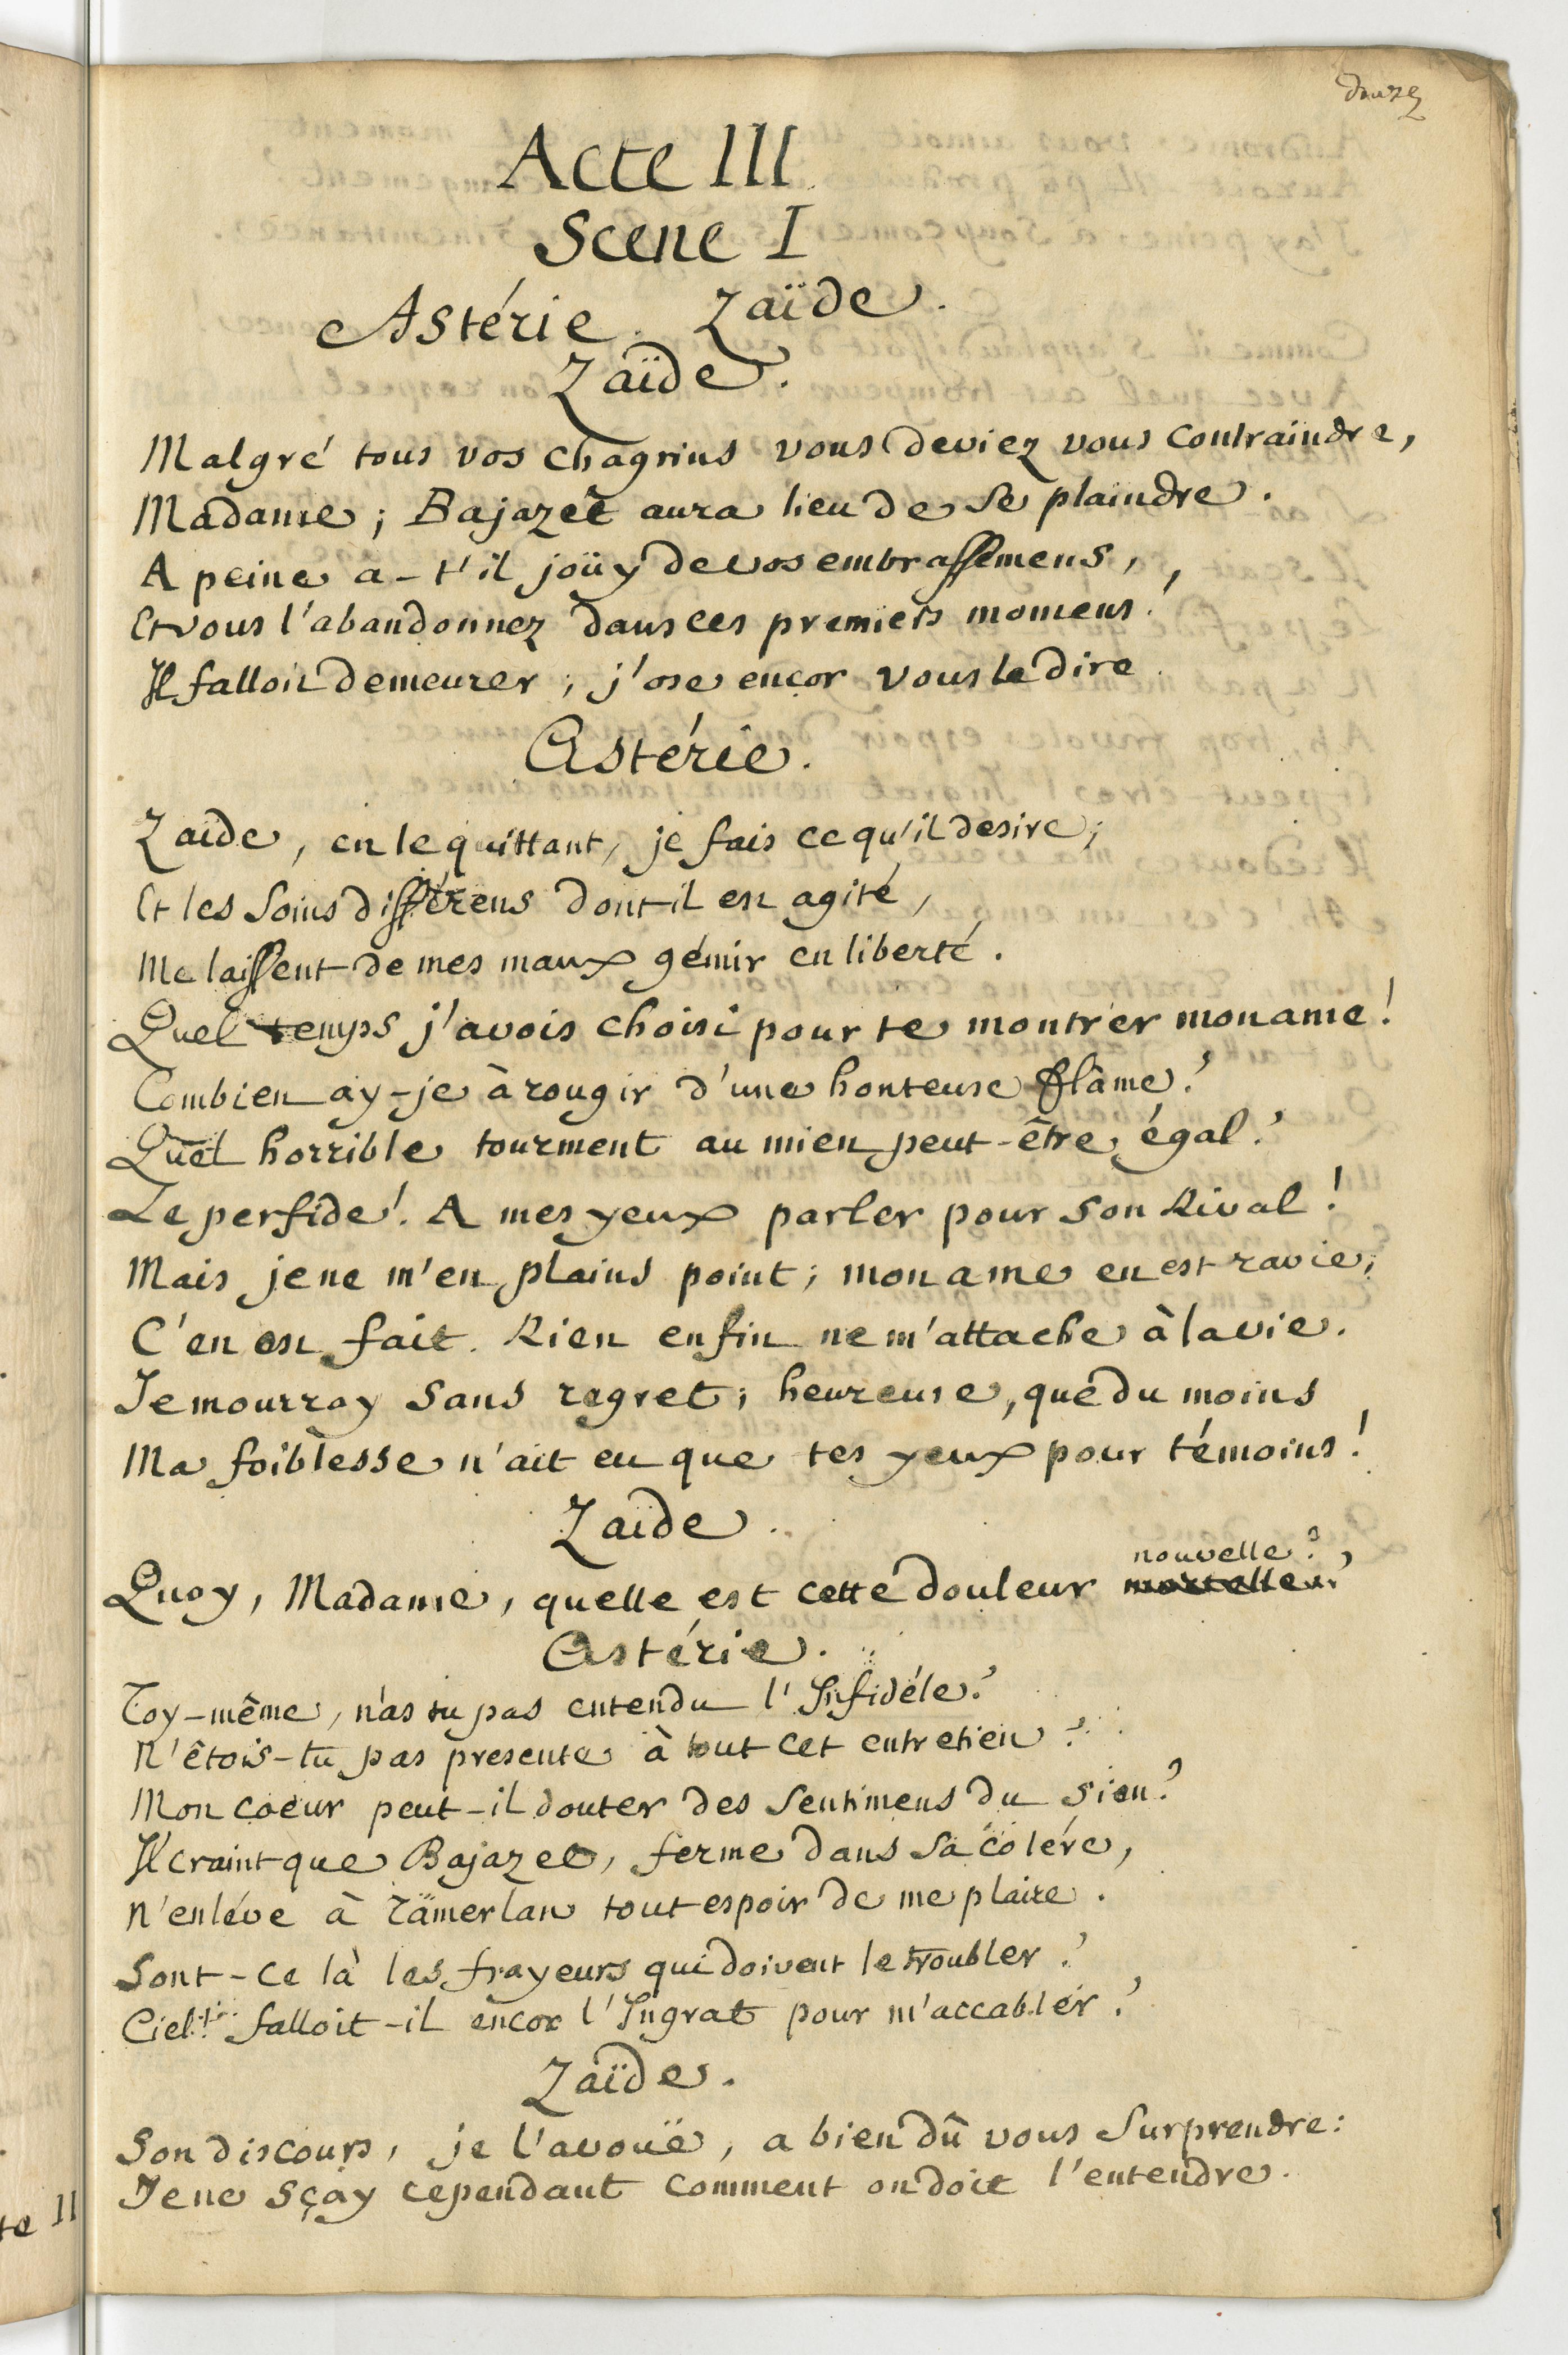 douze
Acte III
Scene I
Astérie. Zaïde.
Zaïde.
Malgré tous vos chagrins vous deviez vous contraindre,
Madame; Bajazet aura lieu de se plaindre.
A peine a-t'il joüy de vos embrassemens,
Et vous l'abandonnez dans ces premiers momens!
Il falloit demeurer; j'ose encor vous le dire.
Astérie.
Zaïde, en le quittant, je fais ce qu'il desire;
Et les soins différens dont il est agité,
Me laissent de mes maux gémir en liberté.
Quel temps j'avois choisi pour te montrer mon ame!
Combien ay-je à rougir d'une honteuse flâme?
Quel horrible tourment au mien peut-être égal?
Le perfide! A mes yeux parler pour son Rival!
Mais je ne m'en plains point; mon ame en est ravie;
C'en est fait. Rien enfin ne m'attache à la vie.
Je mourray sans regret; heureuse, que du moins
Ma foiblesse n'ait eu que tes yeux pour témoins!
Zaïde.
nouvelle?
Quoy, Madame, quelle est cette douleur mortelle?
Astérie.
Toy-même, n'as tu pas entendu l'Infidéle?
N'êtois-tu pas presente à tout cet entretien?
Mon coeur peut-il douter des sentimens du sien?
Il craint que Bajazet, ferme dans sa colére,
N'enléve à Tamerlan tout espoir de me plaire.
Sont-ce là les frayeurs qui doivent le troubler?
Ciel! falloit-il encor l'Ingrat pour m'accabler?
Zaïde.
Son discours, je l'avoüe, a bien dû vous surprendre:
Je ne sçay cependant comment on doit l'entendre.
te II